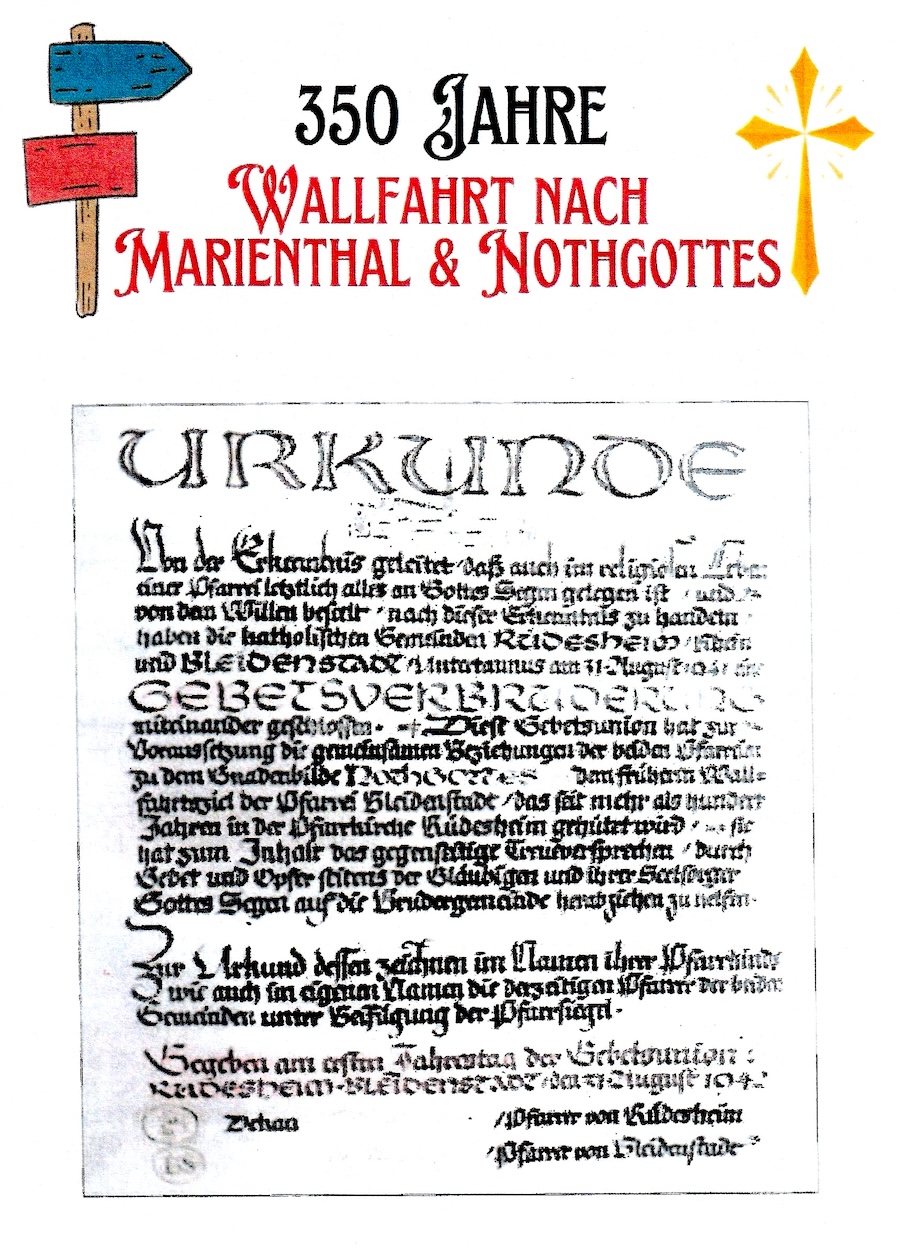 350 JAHRE
WALLFAHRT NACH
MARIENTHAL & NOTHGOTTES
URKUNDE
Von der Erkenntnis geleitet / daß auch im religiösen
einer Pfarrei letztlich alles an Gottes Segen gelegen ist / und
von dem Willen beseelt / nach dieser Erkenntnis zu handeln
haben die katholischen Gemeinden RÜDESHEIM /
und BLEIDENSTADT / Untertaunus am 31. August
GEBETSVERBRÜDERUNG
miteinander geschlossen. Diese Gebetsunion hat zur
Voraussetzung die gemeinsamen Beziehungen der beiden Pfarreien
zu dem Gnadenbilde NOTHGOTTES dem frühern Wall=
fahrtsziel der Pfarrei Bleidenstadt / das seit mehr als hundert
Jahren in der Pfarrkirche Rüdesheim gehütet wird / sie
hat zum Inhalt das gegenseitige Treueversprechen / durch
Gebet und Opfer seitens der Gläubigen und ihrer Seelsorger
Gottes Segen auf die Brudergemeinde herabziehen zu helfen.
Zur Urkund dessen zeichnen im Namen ihrer Pfarrkinder
wie auch im eigenen Namen die derzeitigen Pfarrer der beiden
Gemeinden unter Beifügung der Pfarrsiegel.
Gegeben am ersten Jahrestag der Gebetsunion:
RÜDESHEIM-BLEIDENSTADT / den 31. August
Dekan /Pfarrer von Rüdesheim
/Pfarrer von Bleidenstadt